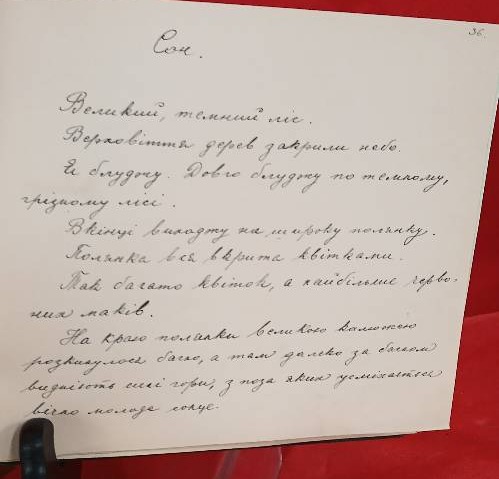 36.
Сон.
Великий, темний ліс.
Верховіття дерев закрили небо.
Я блуджу. Довго блуджу по темному,
грізному лісі.
Вкінці виходжу на широку полянку.
Полянка вся вкрита квітками.
Так багато квіток, а найбільше черво-
них маків.
На краю полянки великою калюжею
розкинулося багно, а там далеко за багном
видніють сині гори, з поза яких усміхається
вічно молоде сонце.